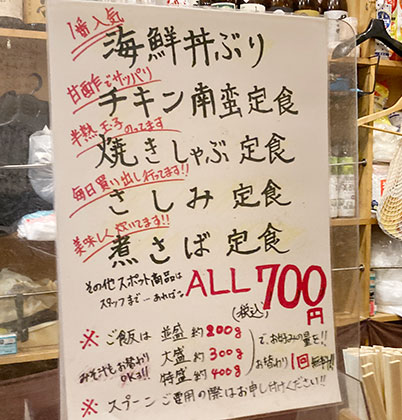 1番人気
海鮮丼ぶり
甘酢でサッパリ
チキン南蛮定食
半熟玉子のってます
焼きしゃぶ定食
毎日買い出し行ってます!!
さしみ定食
美味しく炊いてます!!
煮さば定食
その他スポット商品は
スタッフまで
ALL 700円
(税込)
※ご飯は 並盛 約200g
大盛 約300g
特盛 約400g
で、お好みの量を!!
お替わり1回無料!!
みそ汁もお替わり
OKネ!!
※スプーンご要用の際はお申し付けください!!